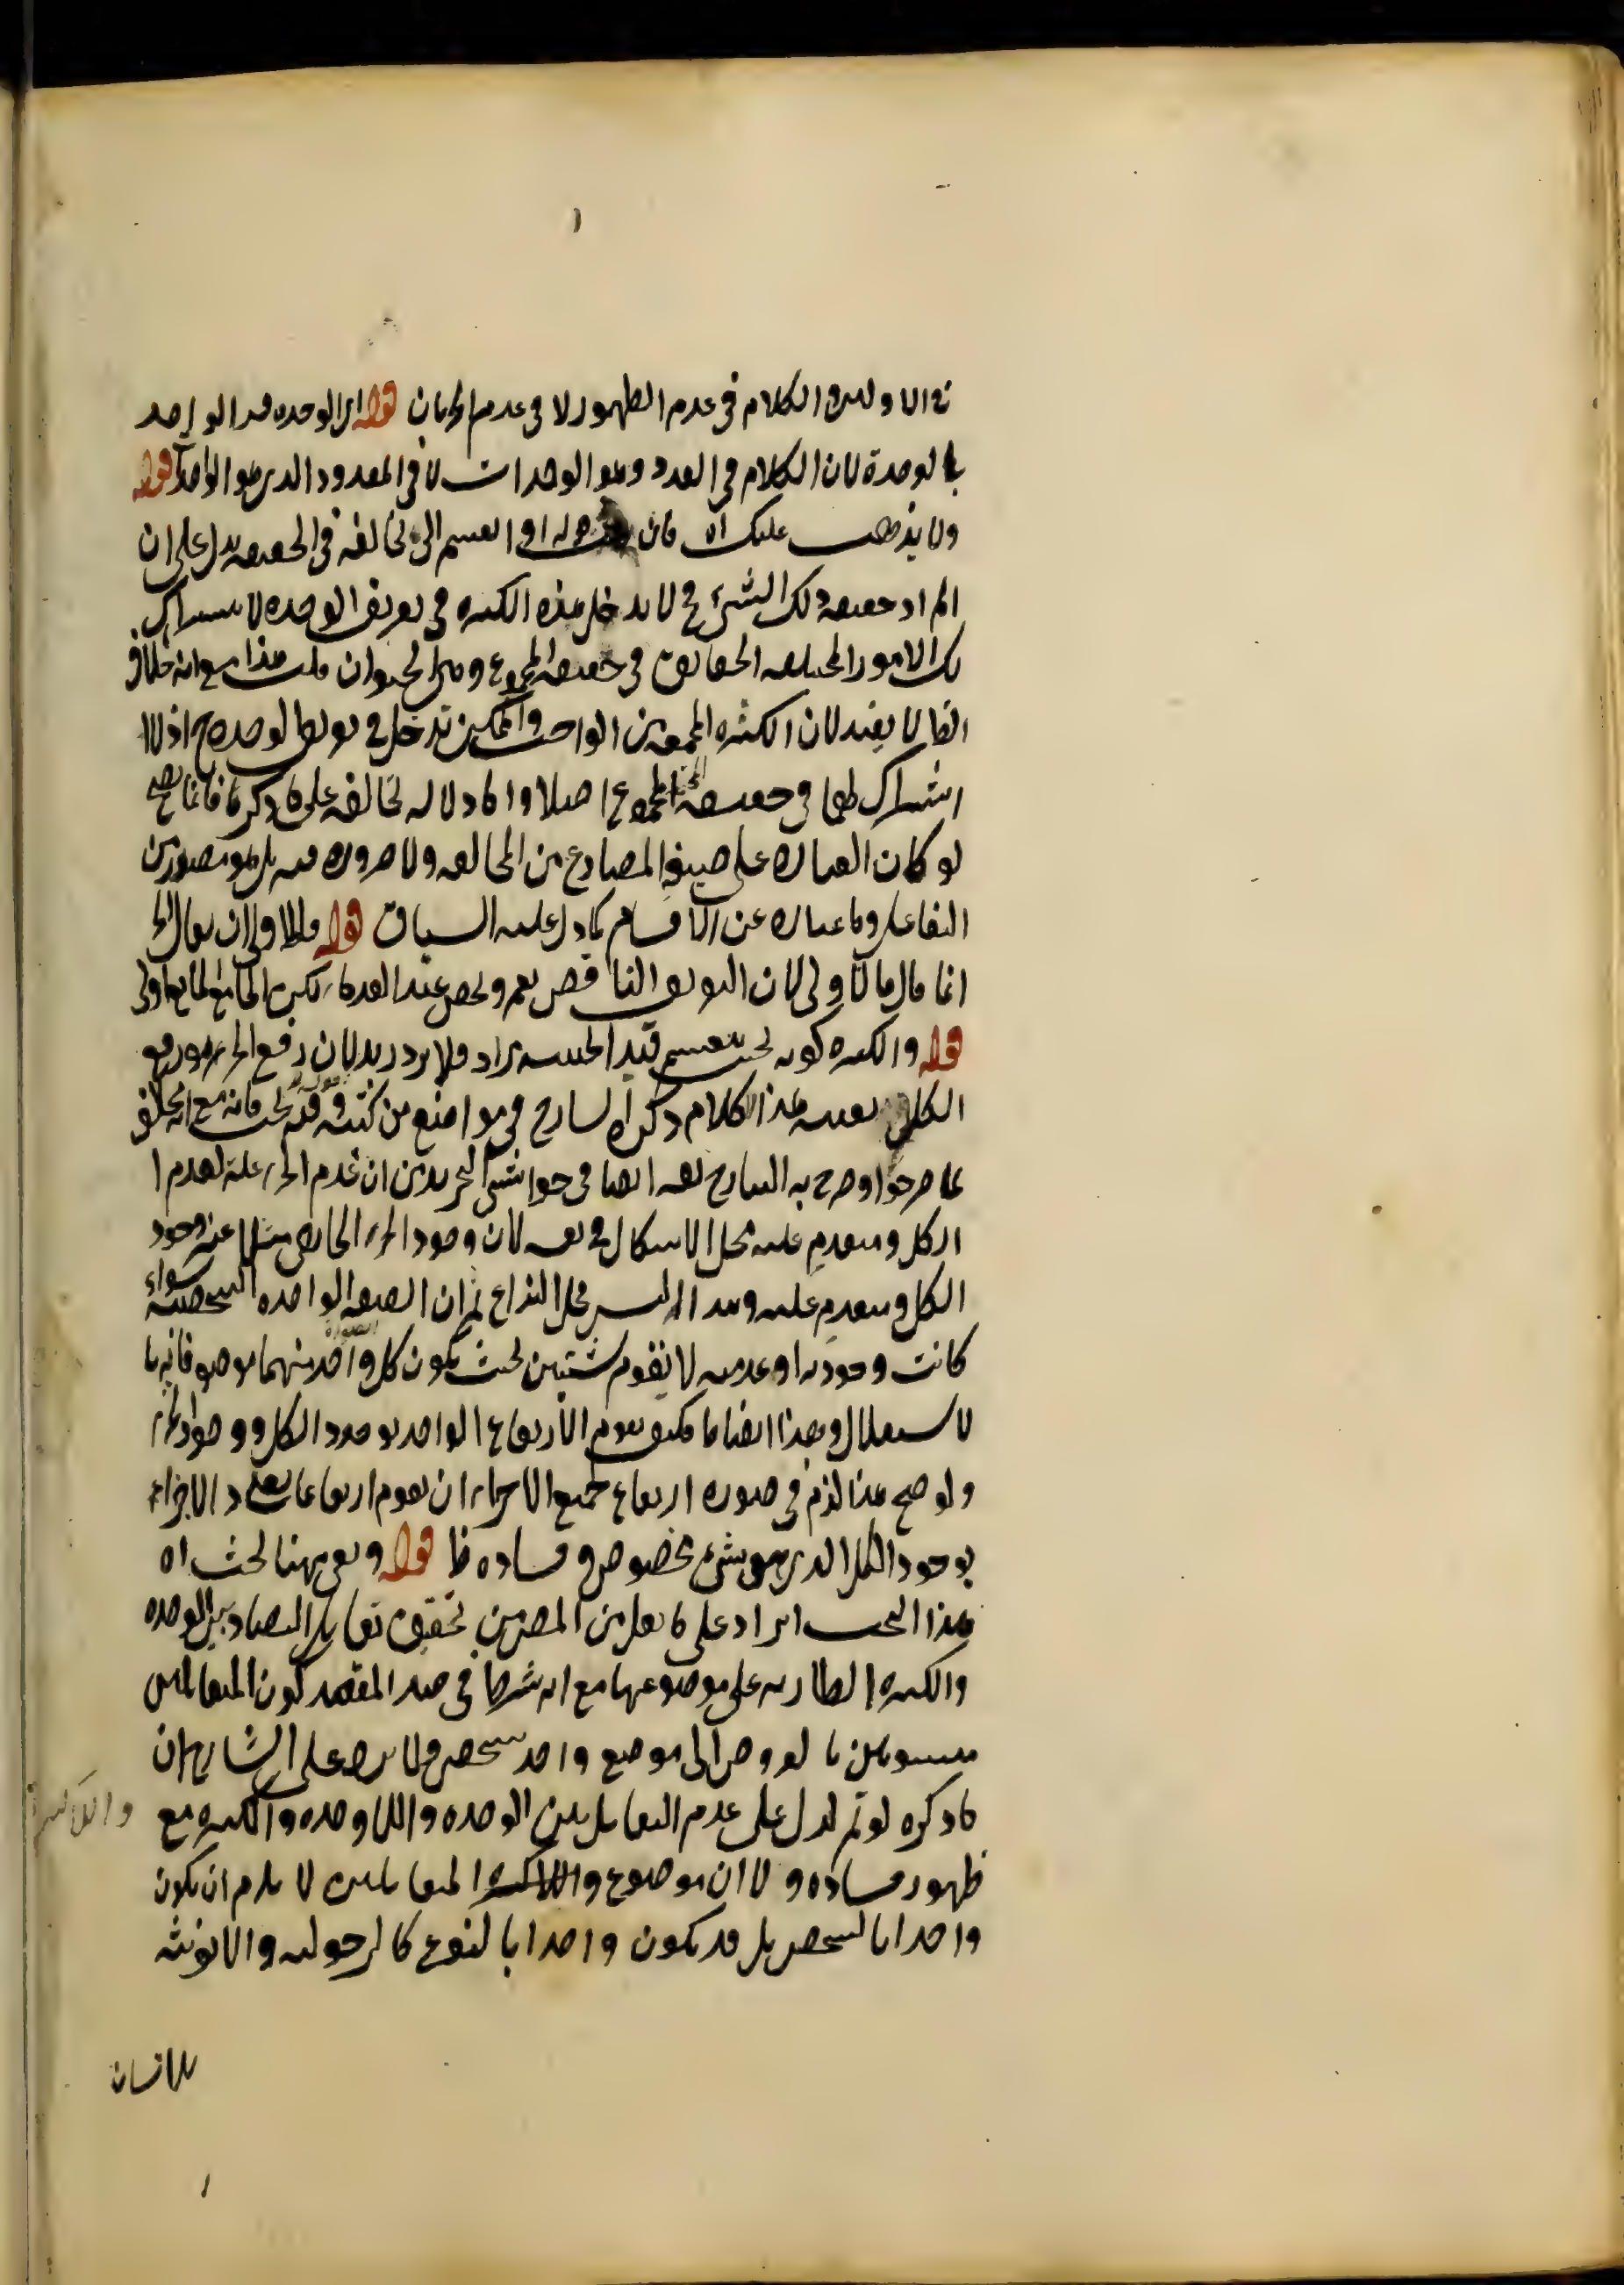 في الاوليين الكلام في عدم الظهور لا في عدم الجريان قوله اي الوحدة قيد الواحد
بالوحدة لان الكلام في العدد وهو الوحدات لا في المعدود الذي هو الواحد قوله
ولا يذهب عليك اه فان قوله او القسم الى مخالفه في الحقيقة يدل على ان
المراد حقيقة ذلك الشئ فح لا يدخل هذه الكثرة في تعريف الوحدة لاشتراك
تلك الامور المختلفة الحقائق في حقيقة المجموع وهي الحيوان قلت هذا مع انه خلاف
الظا لا يفيد لان الكثرة المجمعة من الواجب والممكن تدخل في تعريف الوحدة ح اذ لا
اشتراك لهما في حقيقة المجموع اصلا واما دلالة تخالفه على ما ذكر فانما يصح
لو كان العبارة على صيغة المضارع من المخالفة ولا ضرورة فيه بل هو مصدر من
التفاعل وما عبارة عن الاقسام كما دل عليه السياق قوله فالاولى ان يقال اه
انما قال بالاولى لان التعريف الناقص يعم ويخص عند القدماء لكن الجامع المانع اولى
قوله والكثرة كونه بحيث ينقسم قيد الحيثية مراد فلا يرد زيد لان رفع الجزء هو رفع
الكل بعينه هذا الكلام ذكره الشارح في مواضع من كتبه وفيه بحث فانه مع انه مخالف
لما صرحوا وصرح به الشارح نفسه ايضا في حواشي التجريد من ان عدم الجزء علة لعدم
الكل ومتقدم عليه محل الاشكال في نفسه لان وجود الجزء الخارجي مثلا غير وجود
الكل ومتقدم عليه وهذا ليس محل النزاع ثم ان الصفة الواحدة الشخصية سواء
كانت وجودية او عدمية لا يقوم بشيئين بحيث يكون كل واحد منهما موصوفا بها
لاستقلال وهذا ايضا فكيف يقوم الارتفاع الواحد بوجود الكل ووجود الجزء
ولو صح هذا لزم في صورة ارتفاع جميع الاجزاء ان يقوم ارتفاعات بعدد الاجزاء
بوجود الكل الذي هو شئ مخصوص وفساده ظا قوله وبقي ههنا بحث اه
هذا البحث ايراد على ما نقل من المصر من تحقيق تقابل التضاد بين الوحدة
والكثرة الطارية على موضوعها مع انه شرط في صدر المقصد كون المتقابلين
منسوبين بالعروض الى موضع واحد شخصي ولا يرد على الشارح ان
ما ذكره لو تم لدل على عدم التقابل بين الوحدة واللاوحدة والكثرة مع
واللاكثرة
ظهور فساده ولا ان موضوع المتقابلين لا يلزم ان يكون
واحدا بالشخص بل قد يكون واحدا بالنوع كالرجولية والانوثة
للانسان